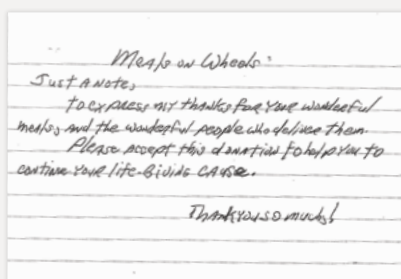 Meals on Wheels:
Just a note,
to express my thanks for your wonderful
meals, and the wonderful people who deliver them.
Please accept this donation to help you to
continue your life-giving cause.
Thank you so much!